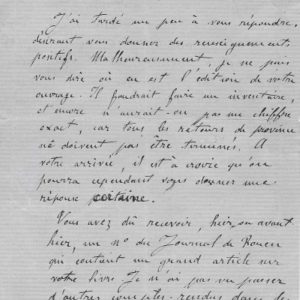 J'ai tardé un peu à vous répondre,
désirant vous donner des renseignements
positifs. Malheureusement, je ne puis
vous dire où en est l'édition de votre
ouvrage. Il faudrait faire un inventaire,
et encore n'aurait-on pas un chiffre
exact, car tous les retours de province
ne doivent pas être terminés. A
votre arrivée, il est à croire qu'on
pourra cependant vous donner une
réponse certaine.
Vous avez dû recevoir, hier, ou avant
hier, un no du Journal de Rouen
qui contient un grand article sur
votre livre. Je n'ai pas vu passer
d'autres comptes-rendus dans le